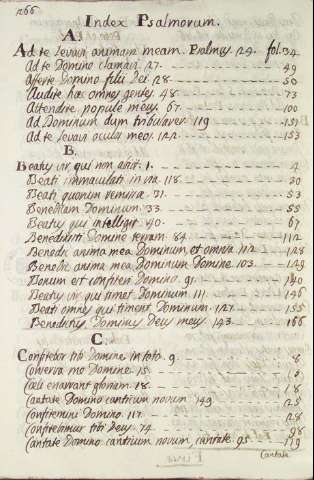 266
Index Psalmorum.
A.
Ad te levavi animam meam. Psalmus 24. fol. 34
Ad te Domino clamavi. 27. 49
Afferte Domino filii Dei. 28. 50
Audite hæc omnes gentes 48. 73
Attendite popule meus. 67. 100
Ad Dominum dum tribularer 119. 151
Ad te levavi oculos meos. 122. 153
B.
Beatus vir qui non abiit. 1. 4
Beati immaculati in via 118. 20
Beati quorum remissa. 31. 53
Benedicam Dominum. 33. 55
Beatus qui intelligit. 40. 67
Benedixisti Domine terram. 84. 112
Benedic anima mea Dominum et omnia 112 128
Benedic anima mea Dominum Domine 103. 129
Bonum est confiteri Domino. 91. 140
Beatus vir qui timet Dominum 111. 146
Beati omnes qui timent Dominum. 127. 155
Benedictus Dominus Deus meus 143. 166
C.
Confitebor tibi Domine in toto. 9. 8
Conserva me Domine. 15. 
Cæli enarrant gloriam. 18. 18
Cantate Domino canticum novum 149. 25
Confitemini Domino. 117. 28
Confitebimur tibi Deus. 74. 98
Cantate Domino canticum novum, cantate. 95 119
Cantate